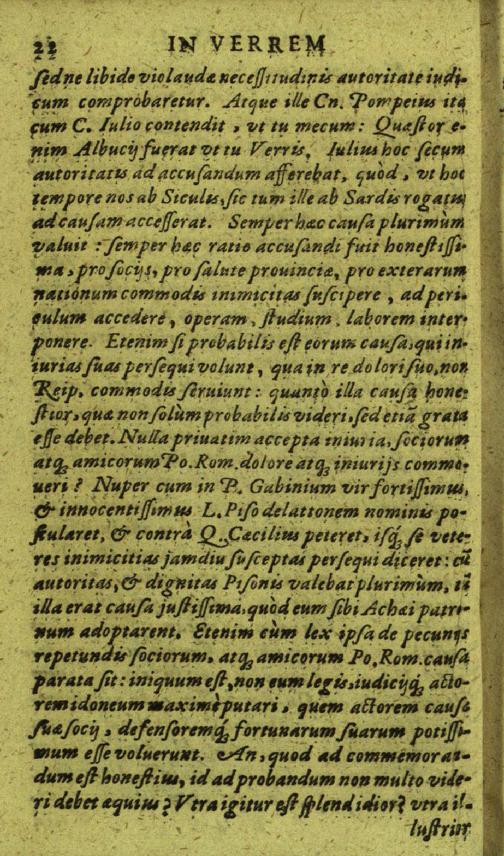 22 IN VERREM
sed ne libido violandæ necessitudinis autoritate iudi-
cum comprobaretur. Atque ille Cn. Pompeius ita
cum C. Iulio contendit, vt tu mecum: Quæstor e-
nim Albucij fuerat vt tu Verris. Iulius hoc secum
autoritatis ad accusandum afferebat, quòd, vt hoc
tempore nos ab Siculis, sic tum ille ab Sardis rogatus
ad causam accesserat. Semper hæc causa plurimùm
valuit: semper hæc ratio accusandi fuit honestissi-
ma, pro socijs, pro salute prouinciæ, pro exterarum
nationum commodis inimicitas suscipere, ad peri-
culum accedere, operam, studium, laborem inter-
ponere. Etenim si probabilis est eorum causa, qui in-
iurias suas persequi volunt, qua in re dolori suo, non
Reip. commodis seruiunt: quantò illa causa hone-
stior, quæ non solùm probabilis videri, sed etiã grata
esse debet. Nulla priuatim accepta iniuria, sociorum
atq; amicorum Po. Rom. dolore atq; iniurijs commo-
ueri? Nuper cum in P. Gabinium vir fortissimus,
& innocentissimus L. Piso delattonem nominis po-
stularet, & contrà Q. Cæcilius peteret, isq; se vete-
res inimicitias jamdiu susceptas persequi diceret: cũ
autoritas, & dignitas Pisonis valebat plurimùm, tũ
illa erat causa justissima, quòd eum sibi Achæi patro-
num adoptarent. Etenim cùm lex ipsa de pecunijs
repetundis sociorum, atq; amicorum Po. Rom. causa
parata sit: iniquum est, non eum legis, iudicijq; acto-
rem idoneum maximè putari, quem actorem causæ
suæ socij, defensoremq; fortunarum suarum potissi-
mum esse voluerunt. An, quod ad commemoran-
dum est honestius, id ad probandum non multo vide-
ri debet æquius? Vtra igitur est splendidior? vtra il-
lustrior